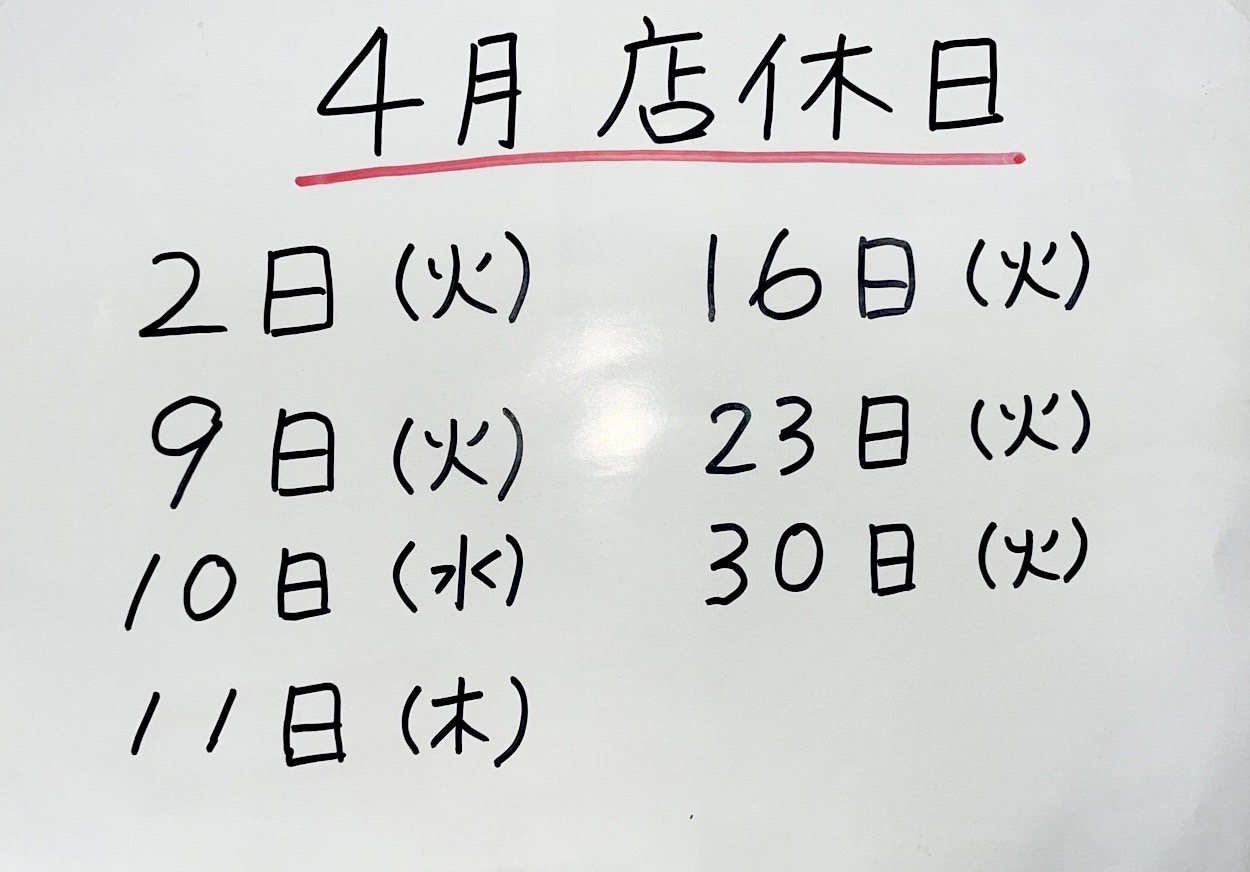 4月 店休日
2日(火)
9日(火)
10日(水)
11日(木)
16日(火)
23日(火)
30日(火)